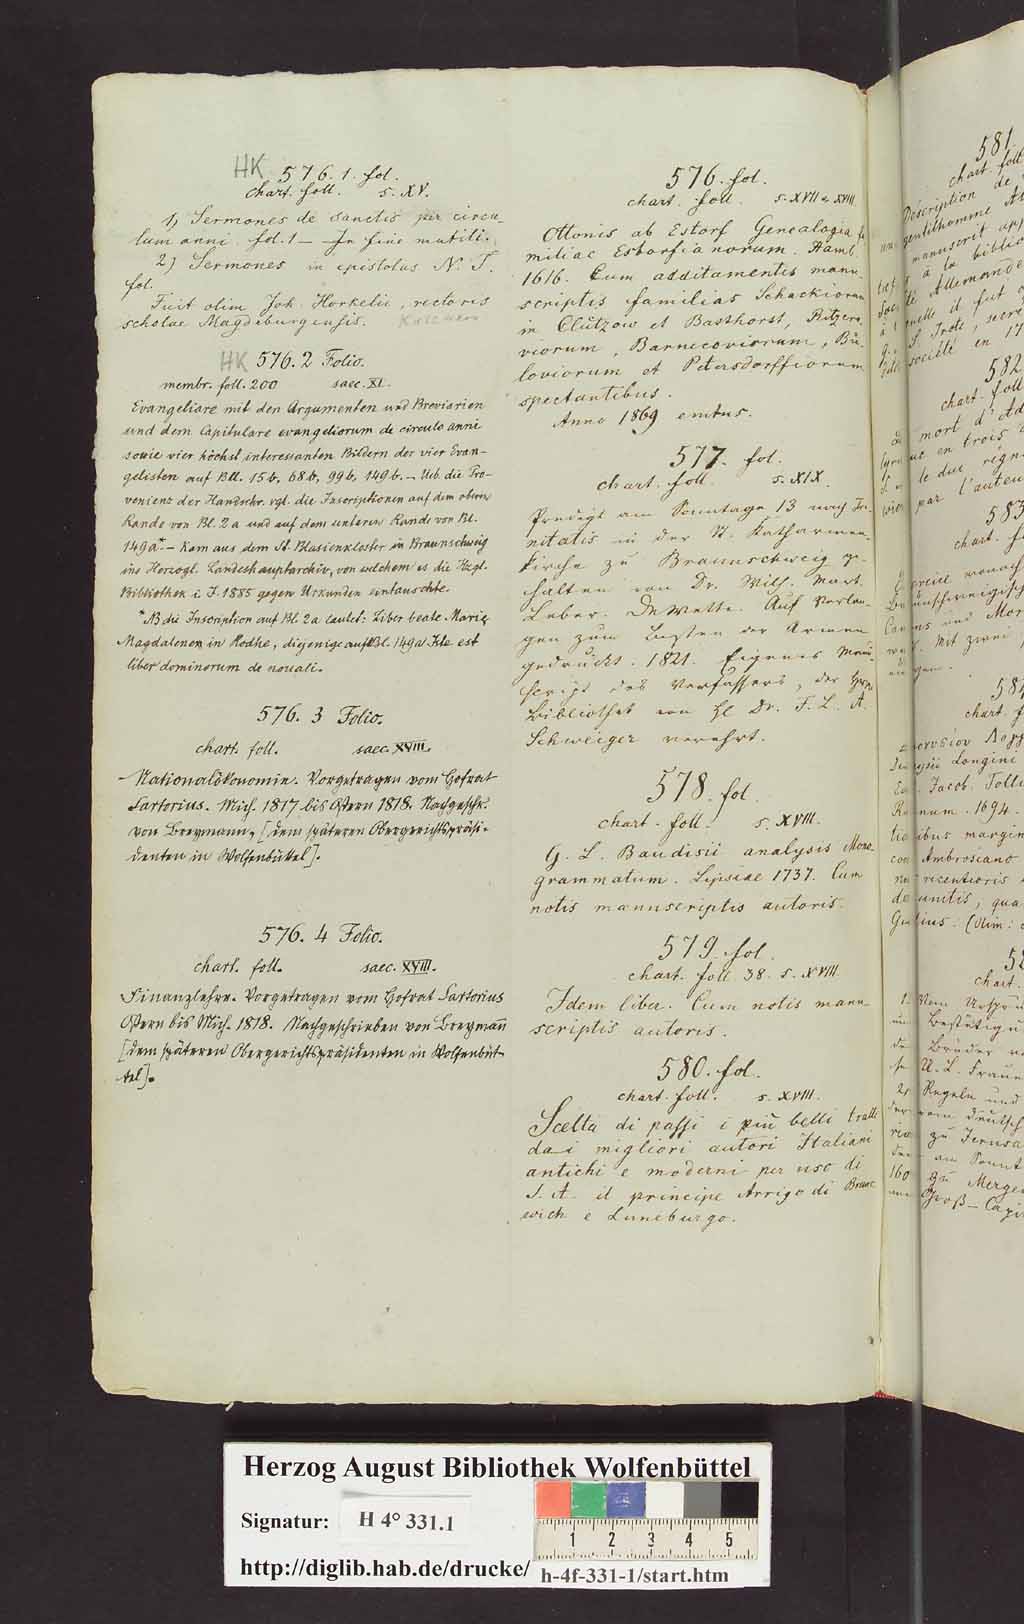 HK 576. 1. fol.
chart. foll. s. XV.
1) Sermones de sanctis per circu-
lum anni. fol. 1 — In fine mutili.
2) Sermones in epistolas N. T.
fol.
Fuit olim Joh. Horkelii, rectoris
scholae Magdeburgensis.
HK 576. 2 Folio.
membr. foll. 200 saec. XI.
Evangeliare mit den Argumenten und Breviarien
und dem Capitulare evangeliorum de circulo anni
sowie vier höchst interessanten Bildern der vier Evan-
gelisten auf Bll. 15b, 68b, 99b, 149b. — Ueb die Pro-
venienz der Handschr. vgl. die Inscriptionen auf dem obern
Rande von Bl. 2a und auf dem unteren Rande von Bl.
149a*. — Kam aus dem St. Blasienkloster in Braunschweig
ins Herzogl. Landeshauptarchiv, von welchem es die Hzgl.
Bibliothek i. J. 1885 gegen Urkunden eintauschte.
* NB die Inscription auf Bl. 2a lautet: Liber beate Marie
Magdalenen in Rodhe, diejenige auf Bl. 149a: Iste est
liber dominorum de nouali.
576. 3 Folio.
chart. foll. saec. XVIII.
Nationalökonomie. Vorgetragen vom Hofrat
Sartorius. Mich. 1817 bis Ostern 1818. Nachgeschr.
von Breymann, [dem späteren Obergerichtspräsi-
denten in Wolfenbüttel].
576. 4 Folio.
chart. foll. saec. XVIII.
Finanzlehre. Vorgetragen vom Hofrat Sartorius
Ostern bis Mich. 1818. Nachgeschrieben von Breymann
[dem späteren Obergerichtspräsidenten in Wolfenbüt-
tel].
576. fol.
chart. foll. s. XVII & XVIII.
Ottonis ab Estorf Genealogia fa
miliae Estorfianorum. Hamb.
1616. Cum additamentis manu
scriptis familias Schackioran
in Clützow et Basthorst, Ritzero-
viorum, Barnecoviorum, Bü-
loviorum et Petersdorffiorum
spectantibus.
Anno 1869 emtus.
577. fol.
chart. foll. s. XIX.
Predigt am Sonntage 13 nach Tri
nitatis in der St. Katharinen-
kirche zu Braunschweig ge-
halten von Dr. Wilh. Mart.
Leber. DeWette. Auf Verlan-
gen zum Besten der Armen
gedruckt. 1821. Eigenes Manu-
script des Verfassers, der Hrzn
Bibliothek von H Dr. F. L. A.
Schweiger verehrt.
578. fol.
chart. foll. s. XVIII.
G. L. Baudisii analysis Mono-
grammatum. Lipsiae 1737. Cum
notis manuscriptis autoris.
579. fol.
chart. foll. 38. s. XVIII
Idem liber. Cum notis manu-
scriptis autoris.
580. fol.
chart. foll. s. XVIII.
Scelta di passi i più belli tratti
dai migliori autori Italiani
antichi e moderni per uso di
S. A. il principe Arrigo di Bruns
wich e Luneburgo.
581
chart. foll
Description de
gentilhomme
manuscrit
à la
Allemande
il fut
secré
société en 17
582
chart. foll
mort d'Ad
en trois
le duc régn
par l'auteu
583
chart. fo
wonach
Mit zwei
chart. f
Longini
Jacob. Tolli
1694.
marg
Ambrosiano
recentioris
(Olim:
58
chart.
Vom Urspru
Bestätigu
Brüder
U. L. Frauen
Regeln und
vom deutsch
zu Jerusa
am Sonnt
zu Merge
Groß-Capi
Herzog August Bibliothek Wolfenbüttel
Signatur: H 4° 331.1
1 2 3 4 5
http://diglib.hab.de/drucke/ h-4f-331-1/start.htm